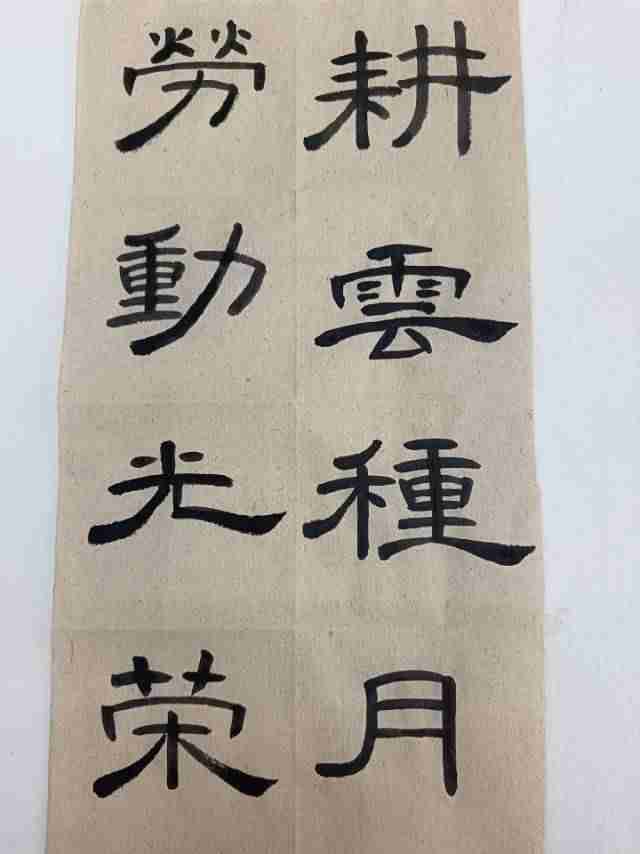 耕雲種月
勞動光荣